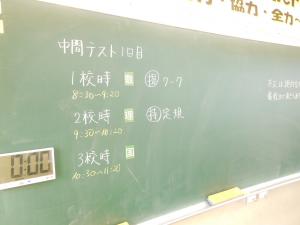 協力・全力
中間テスト1日目
1校時 数 提ワーク
8:30~9:20
2校時 理 特定規
9:30~10:20
3校時 国
10:30~11:20
0:00